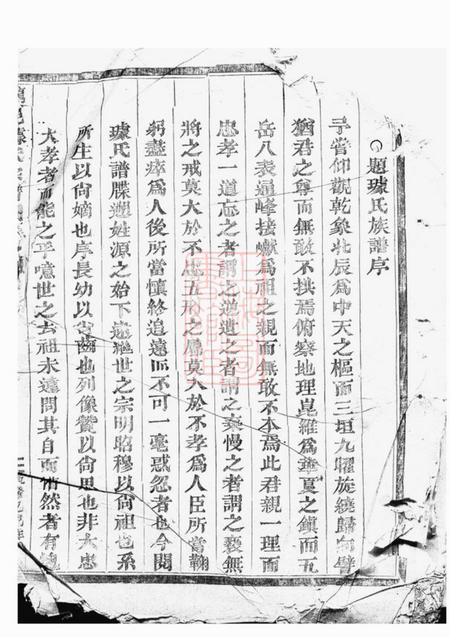 題璩氏族譜序
予嘗仰觀乾象北辰為中天之樞而三垣九曜旋繞歸向譬
猶君之尊而無敢不拱焉俯察地理崑崙為華夏之鎮而五
岳八表遥峰接巘為祖之親而無敢不本焉此君親一理而
忠孝一道忘之者謂之逆遺之者謂之褻慢之者謂之褻無
將之戒莫大於不忠五刑之屬莫大於不孝為人臣所當鞠
躬盡瘁為人後所當慎終追遠而不可一毫惑忽者也今閱
璩氏譜牒遡姓源之始下逮繼世之宗明昭穆以尚祖也系
所生以尚嫡也序長幼以尚齒也列像贊以尚思也非大忠
大孝者而能之乎噫世之去祖未遠問其自而懵然者有